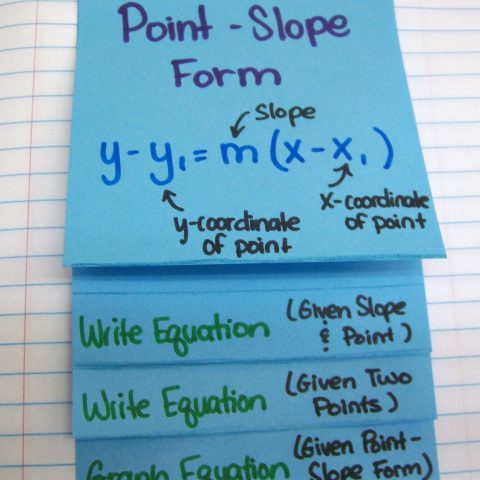 Point - Slope
Form
Slope
y - y₁ = m (x - x₁)
y-coordinate
of point
x-coordinate
of point
Write Equation (Given Slope
& Point)
Write Equation (Given Two
Points)
Graph Equation (Given Point-
Slope Form)